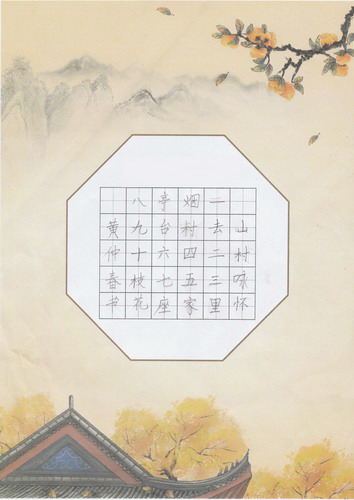 山村咏怀
一去二三里
烟村四五家
亭台六七座
八九十枝花
黄仲春书